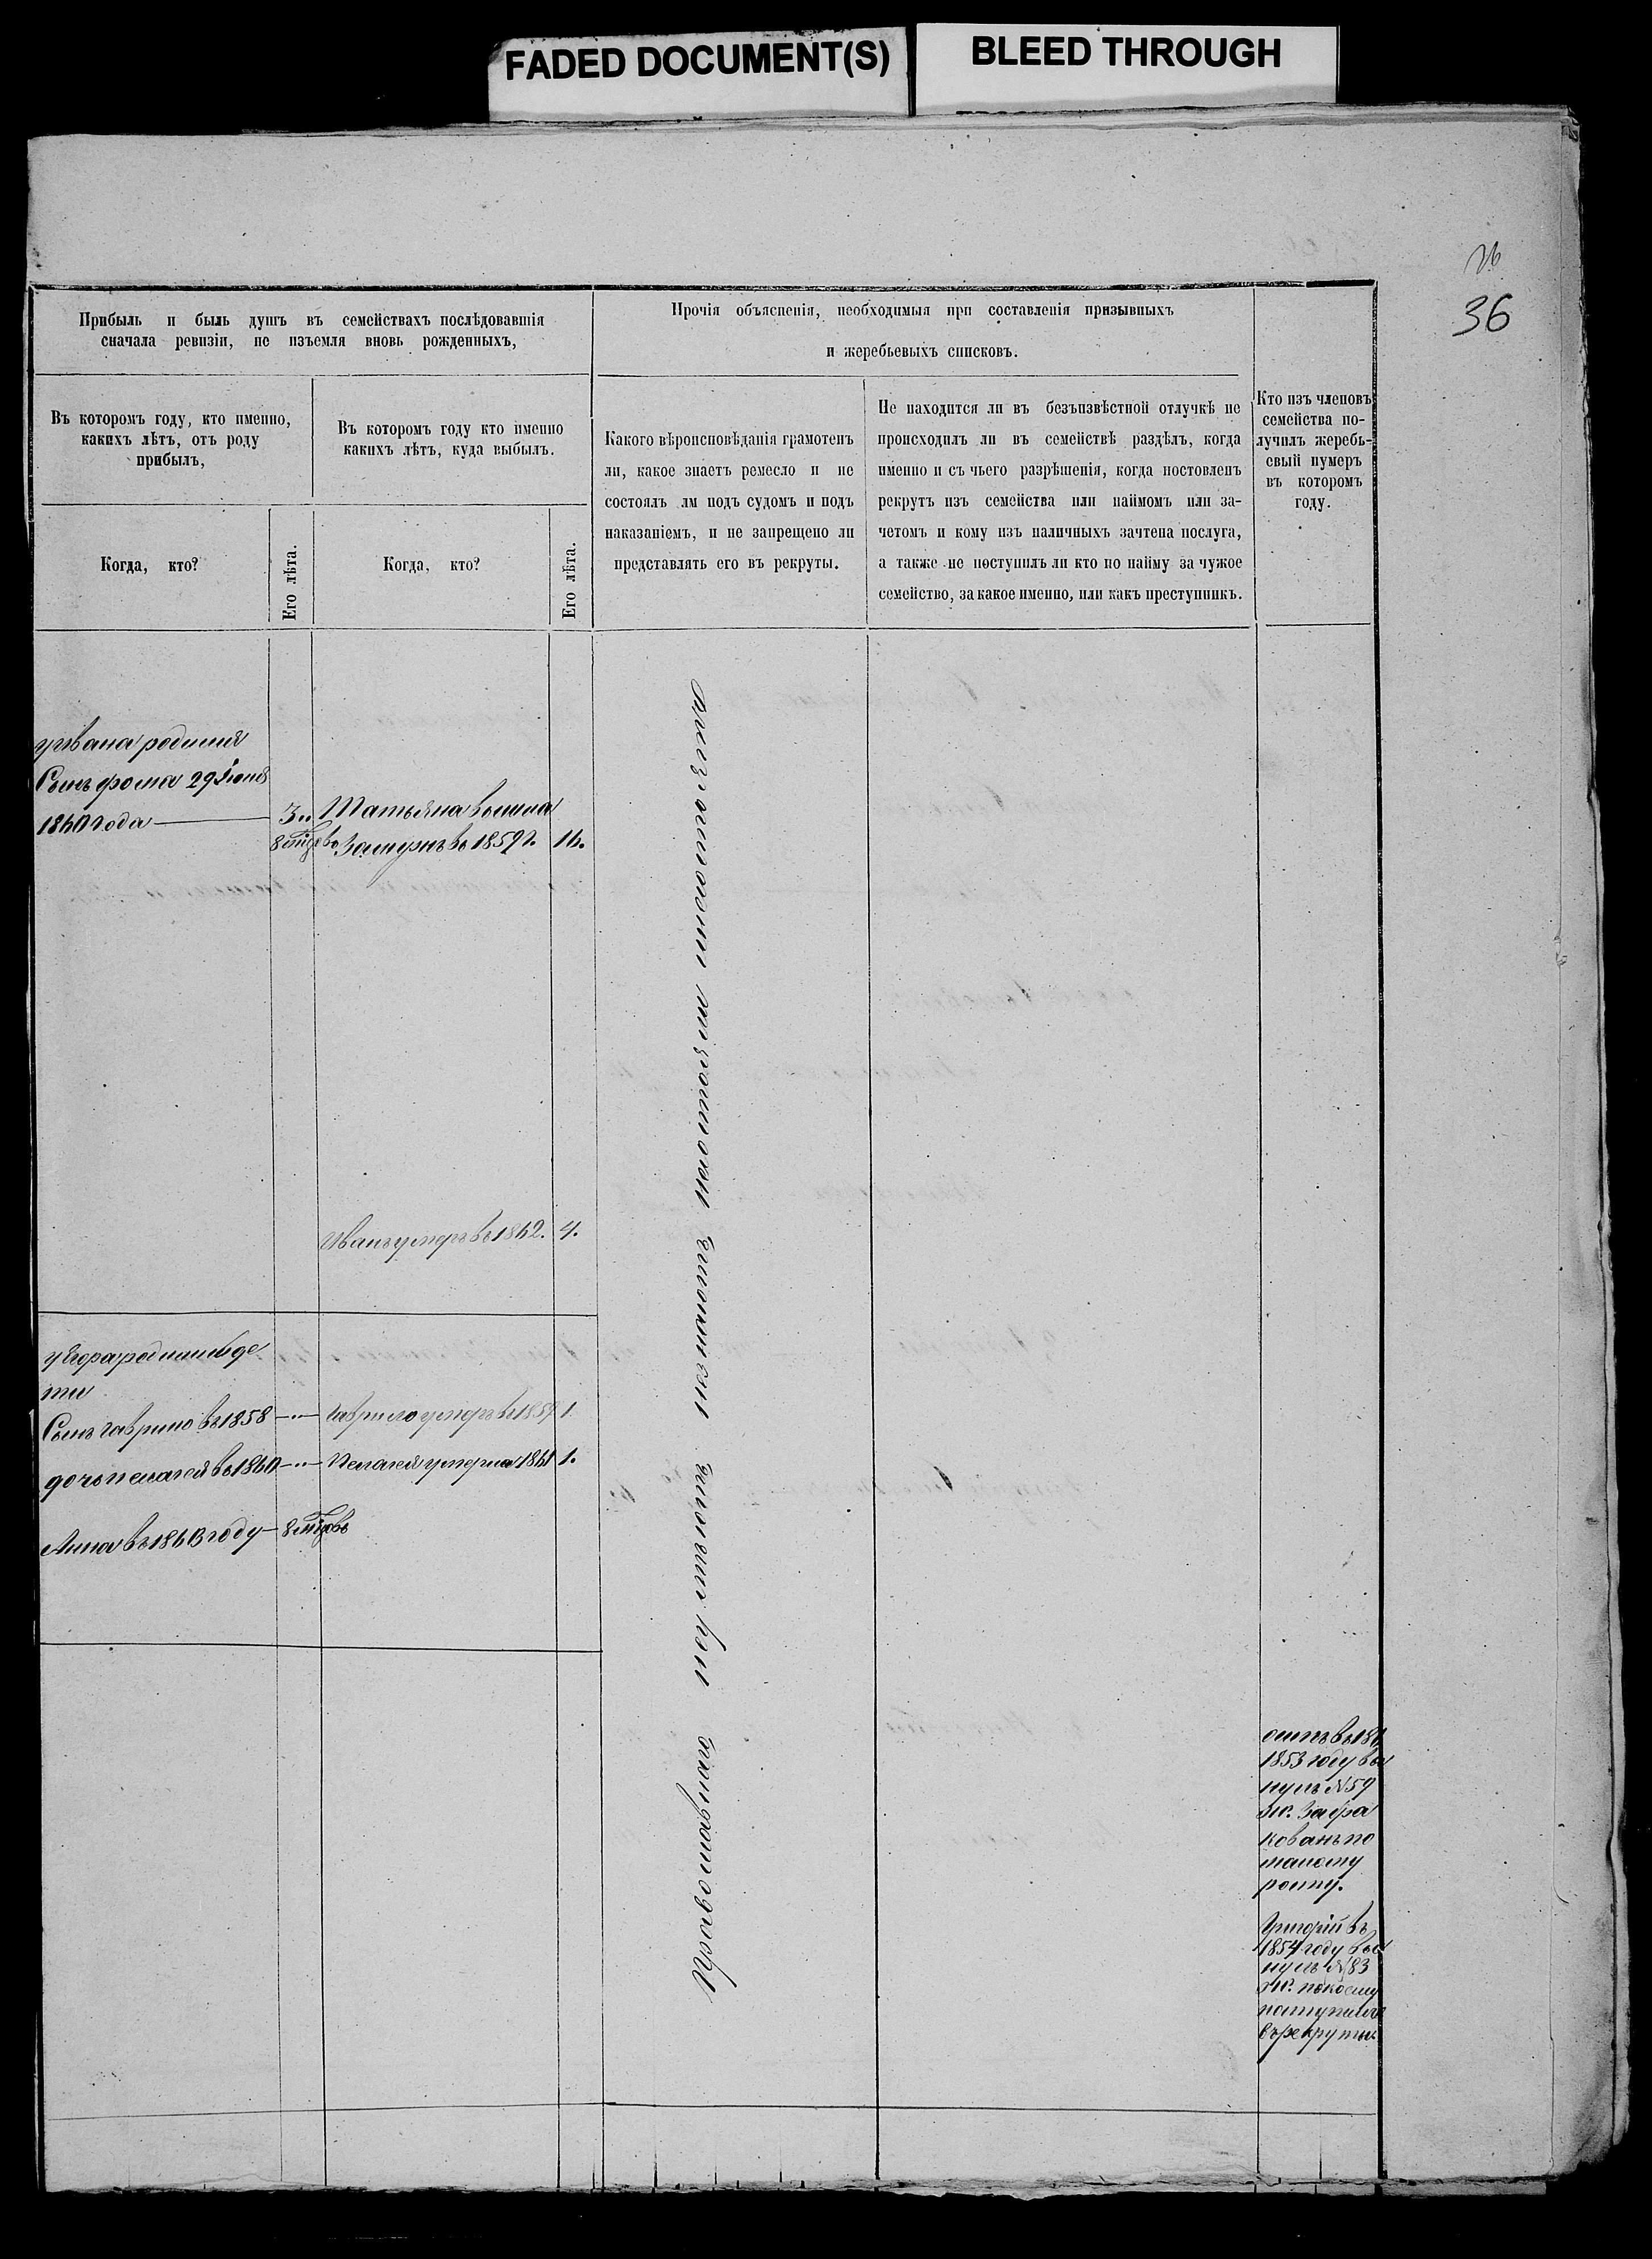 FADED DOCUMENT(S)
BLEED THROUGH
36
Прибыль и быль душъ въ семействахъ послѣдовавшія
сначала ревизіи, не изъемля вновь рожденныхъ,
Въ которомъ году, кто именно,
какихъ лѣтъ, отъ роду
прибылъ,
Когда, кто?
Его лѣта.
Въ которомъ году кто именно
какихъ лѣтъ, куда выбылъ.
Когда, кто?
Его лѣта.
Прочія объясненія, необходимыя при составленія призывныхъ
и жеребьевыхъ списковъ.
Какого вѣроисповѣданія грамотенъ
ли, какое знаетъ ремесло и не
состоялъ лм подъ судомъ и подъ
наказаніемъ, и не запрещено ли
представлять его въ рекруты.
Не находится ли въ безъизвѣстной отлучкѣ не
происходилъ ли въ семействѣ раздѣлъ, когда
именно и съ чьего разрѣшенія, когда поставленъ
рекрутъ изъ семейства или наймомъ или за-
четомъ и кому изъ наличныхъ зачтена послуга,
а также не поступилъ ли кто по найму за чужое
семейство, за какое именно, или какъ преступникъ.
Кто изъ членовъ
семейства по-
лучилъ жеребь-
евый нумеръ
въ которомъ
году.
у Ивана родился
Сынъ фома 29 Іюня
1860 года 3..
8 мцевъ
Татьяна вышла
Замужъ въ 1859 г. 16.
Иванъ умеръ въ 1862. 4.
у Егора родились де
ти
Сынъ гаврило въ 1858 —..— Гаврило умеръ въ 1859 1.
дочь пелагея въ 1860 —..— Пелагея умерла 1861 1.
Анна въ 1863 году — 8 мцовъ
Православного
осипъ въ
1853 году вы
нулъ № 59
Забра
кованъ по
малому
росту.
Григорій въ
1854 году вы
нулъ № 83
по коему
поступилъ
въ рекруты.